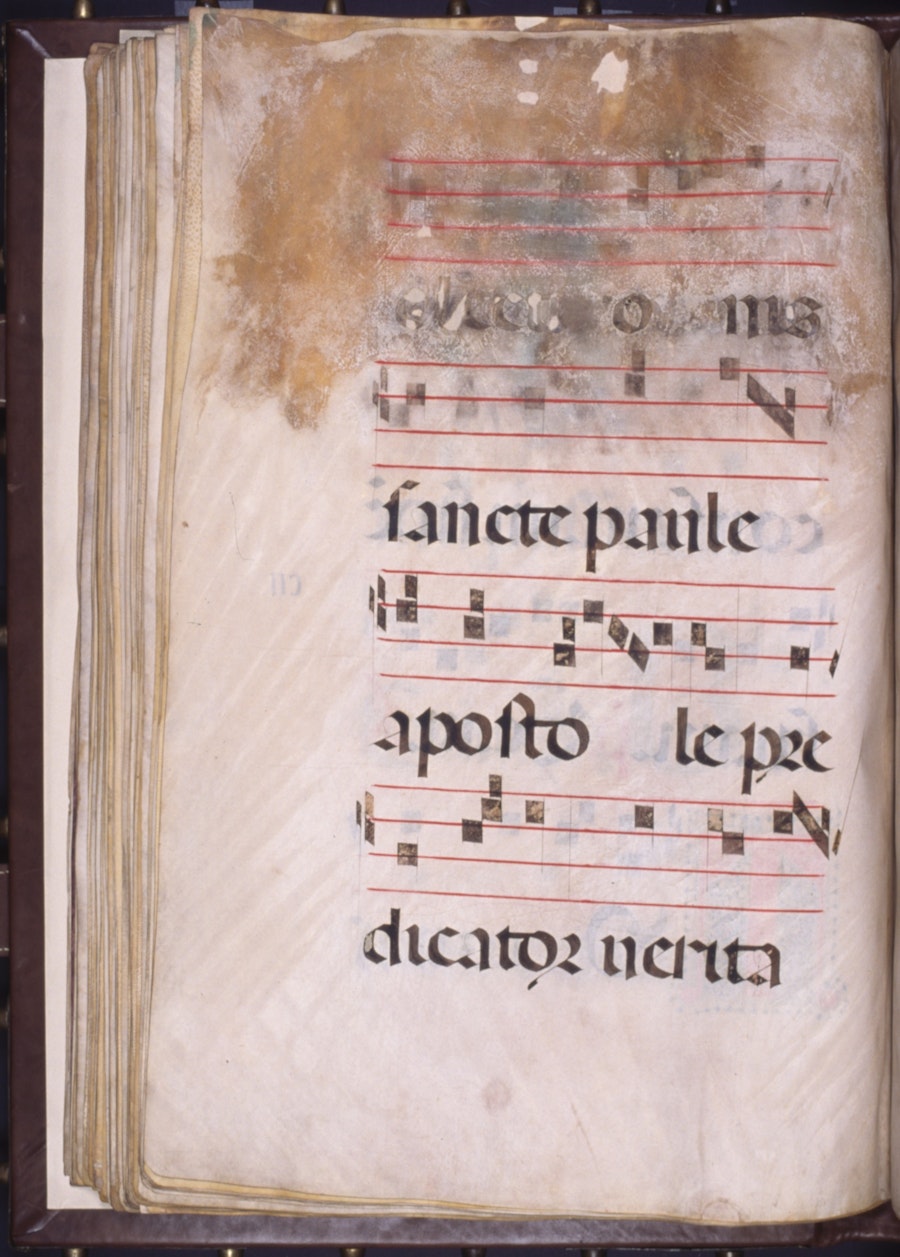 o nis
ſancte paule
apoſto le pre
dicator uerita